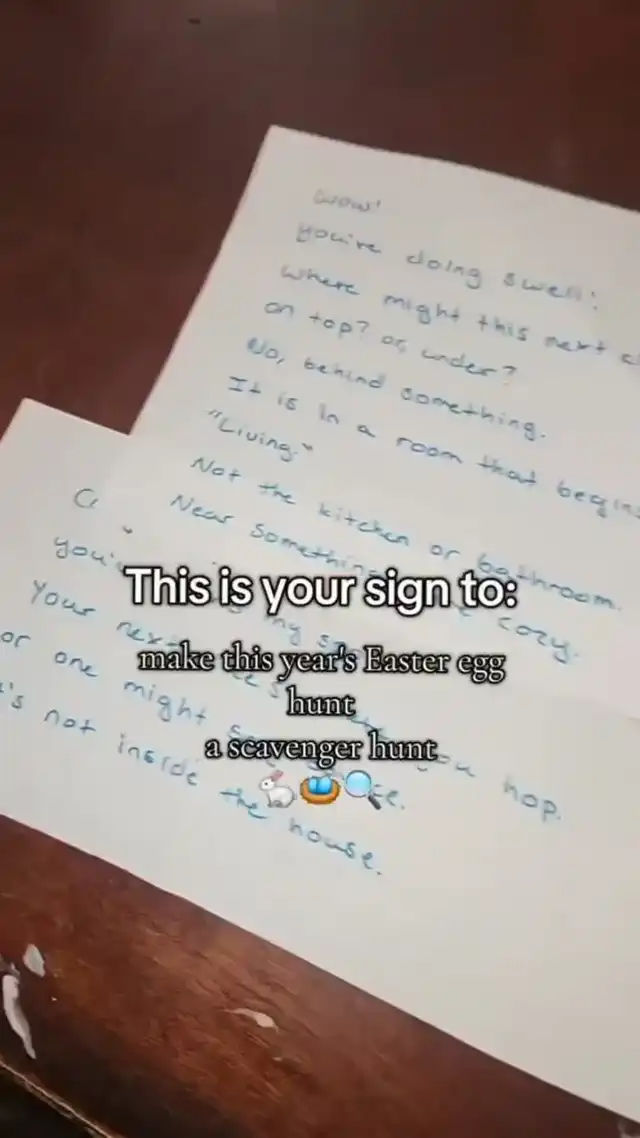 wow!
you're doing swell!
Where might this next
on top? or under?
No, behind something.
It is in a room that begins
"Living."
Not the kitchen or bathroom.
Near something cozy.
This is your sign to:
make this year's Easter egg
hunt
a scavenger hunt
🐇🪺🔍
Your hop.
or one might
not inside the house.